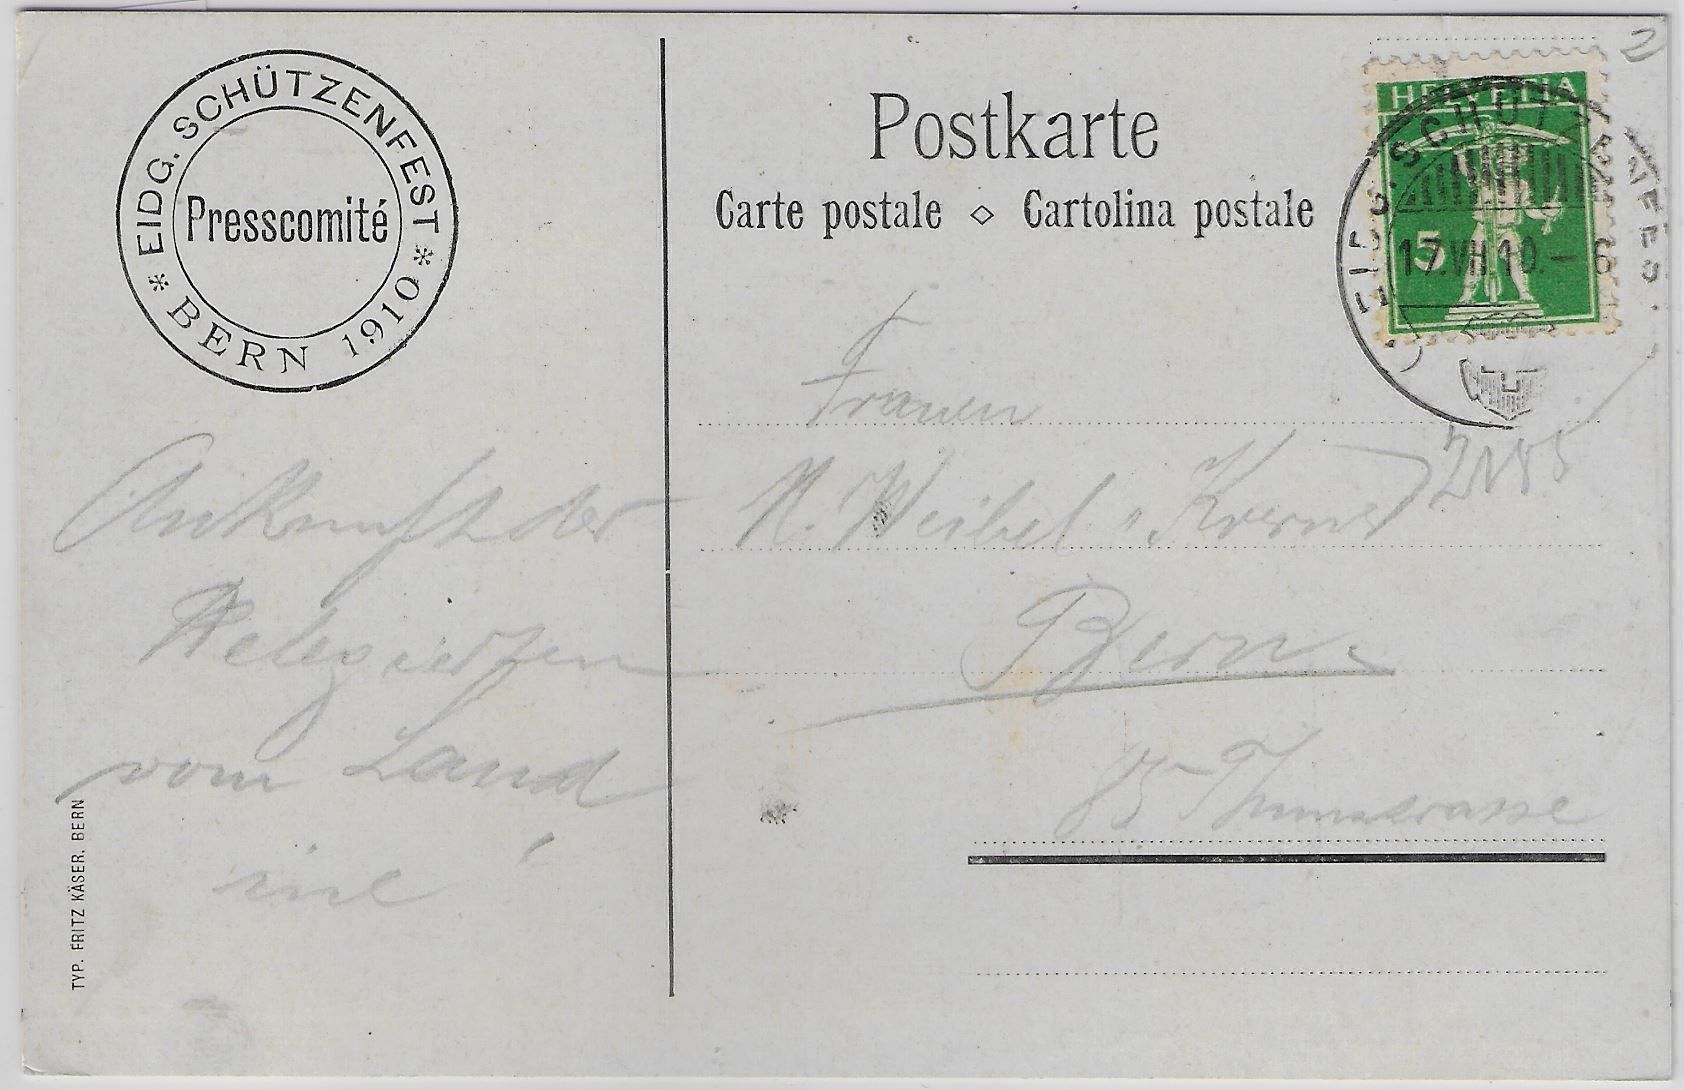 EIDG. SCHÜTZENFEST
Presscomité
* BERN 1910 *
Postkarte
Carte postale ◇ Cartolina postale
HELVETIA
5
EIDG. SCHÜTZENFEST
17.VII.10.–6
2
Ankunft der
Delegierten
vom Land
Frauen
Weibel
Bern.
85 Thunstrasse
TYP. FRITZ KÄSER, BERN